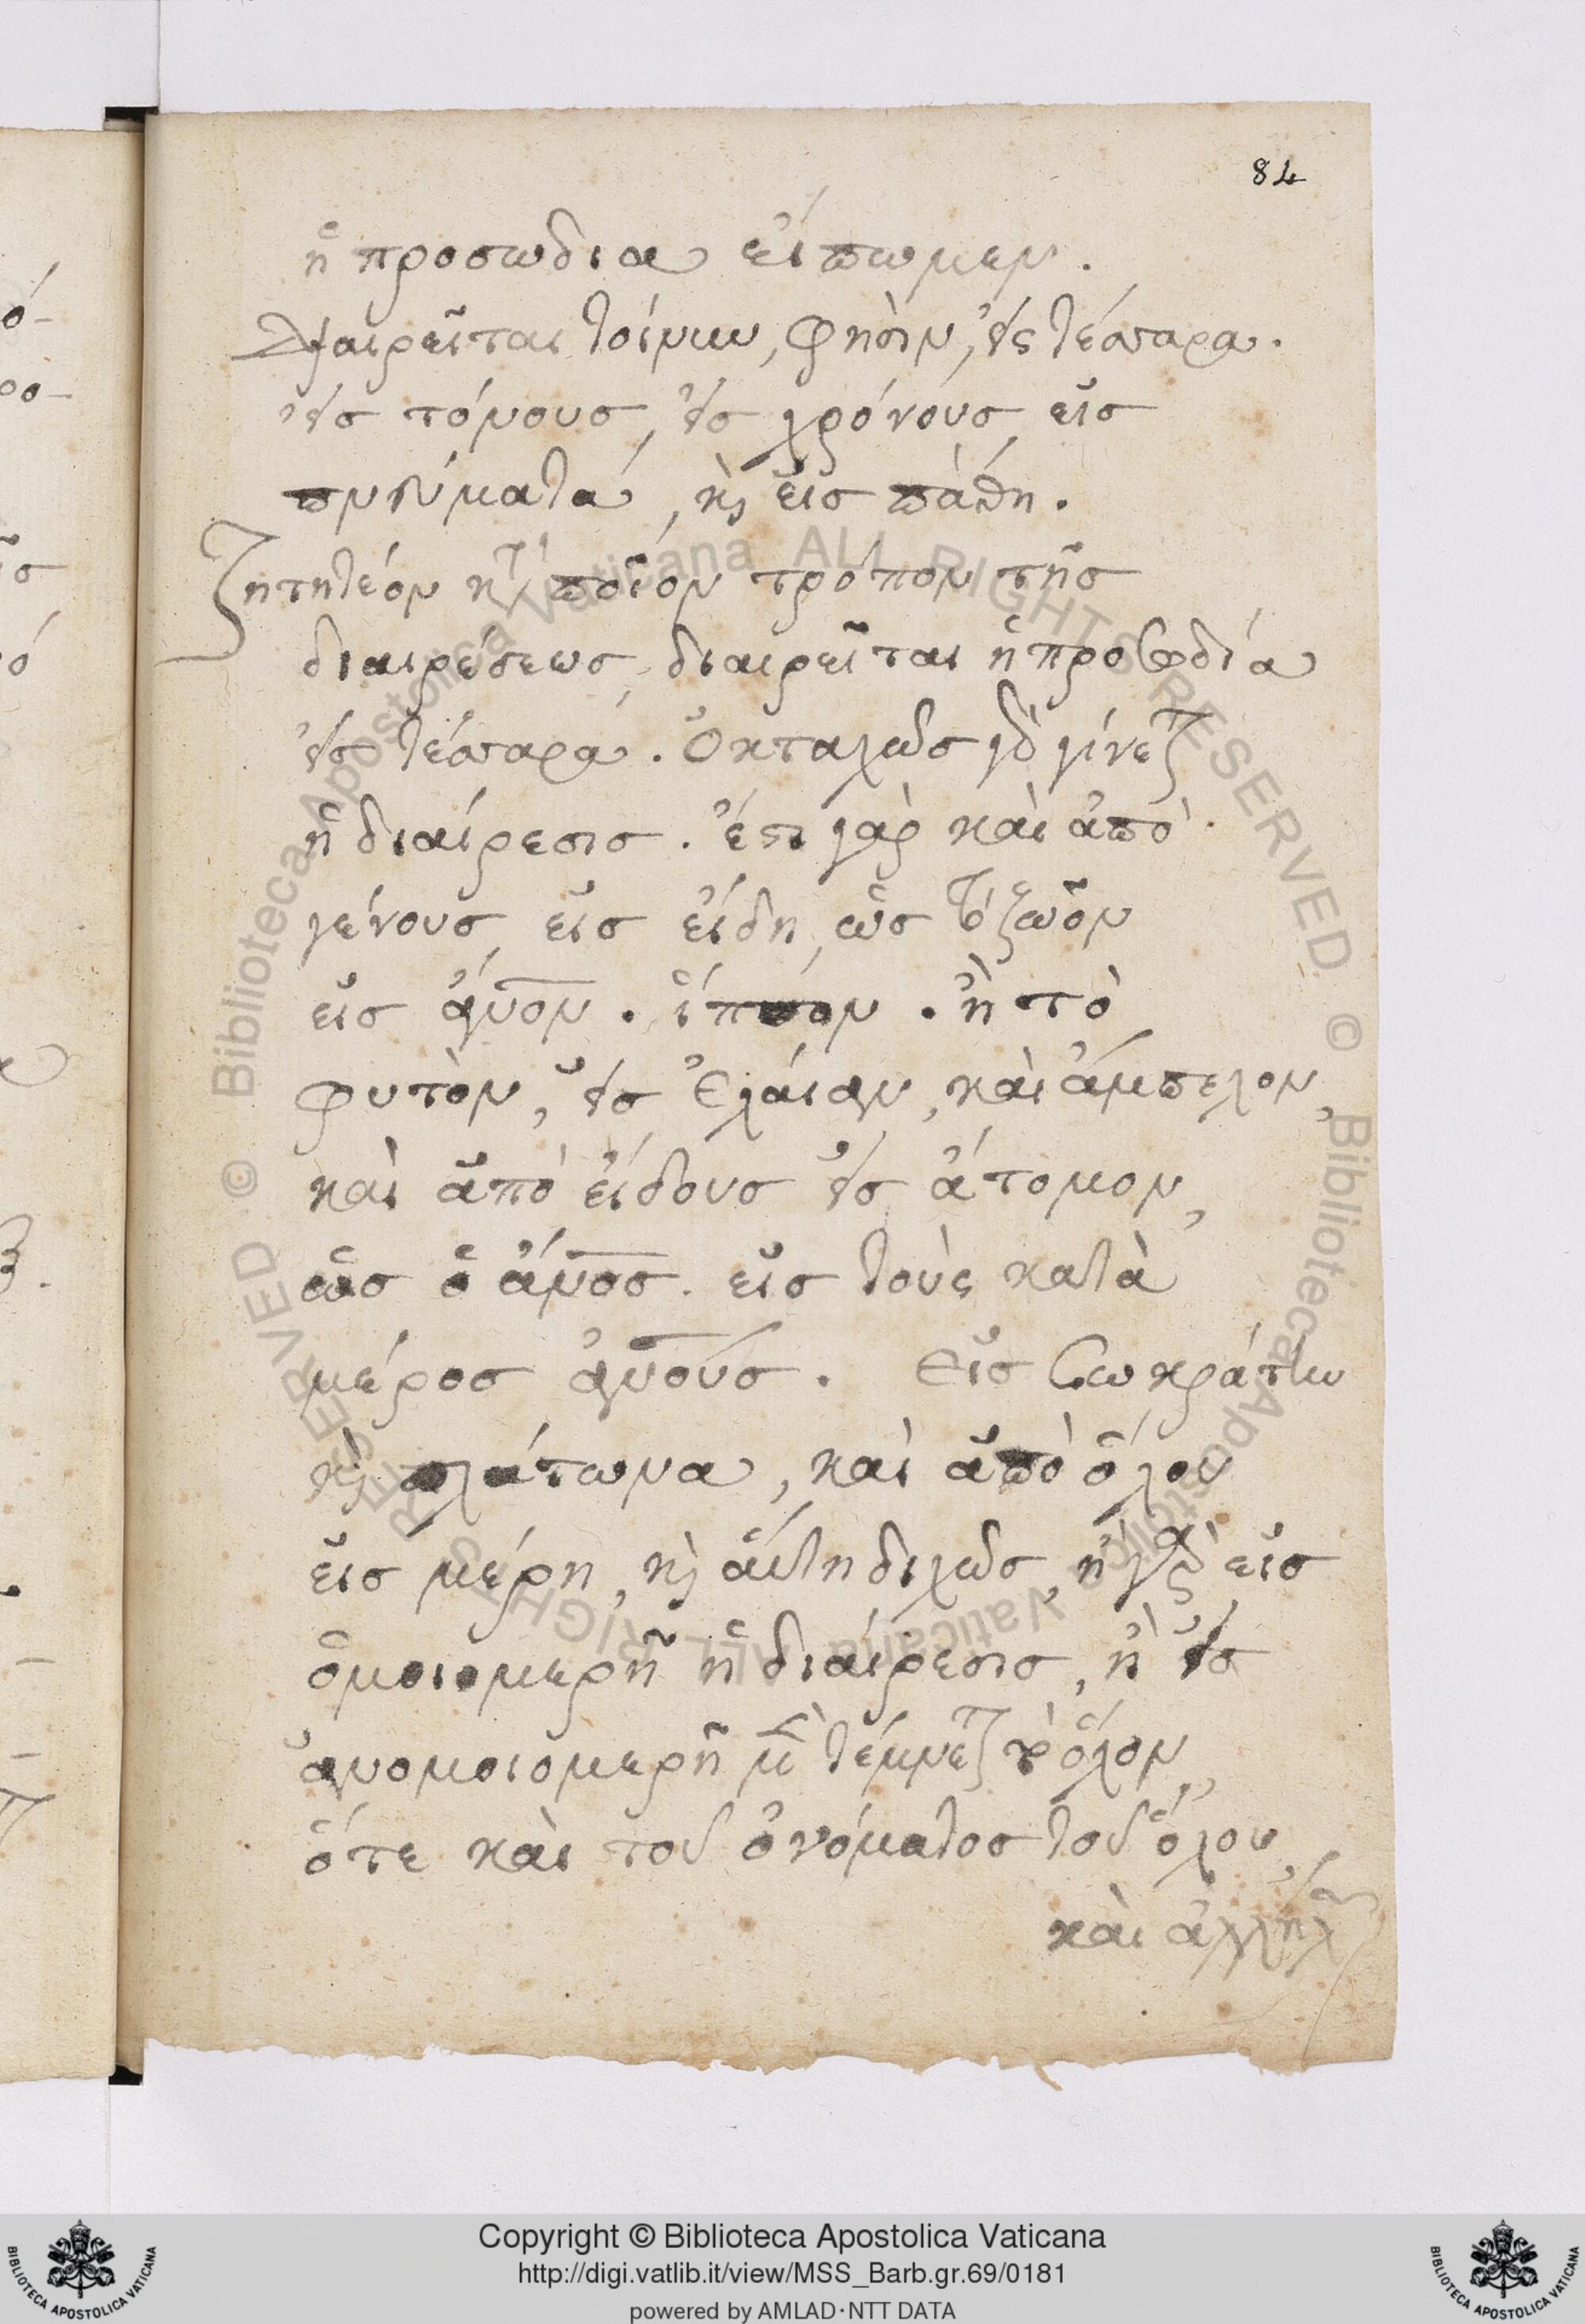 84
ἡ προσωδια εἴπωμεν.
Διαιρεῖται τοίνυν, φησὶν, εἰς τέσσαρα.
εἰς τόνους, εἰς χρόνους, εἰς
πνεύματα, κὶ εἰς πάθη.
Ζητητέον κτ' ποῖον τρόπον τῆς
διαιρέσεως, διαιρεῖται ἡ προσῳδία
εἰς τέσσαρα. Ὀκταχῶς γὰρ γίνεται
ἡ διαίρεσις. ἔστι γὰρ καὶ ἀπὸ
γένους, εἰς εἴδη, ὡς τὸ ζῶον
εἰς ἄνον. ἵππον. ἢ τὸ
φυτὸν, εἰς ἐλάιαν, καὶ ἄμπελον,
καὶ ἀπὸ εἴδους εἰς ἄτομον,
ὡς ὁ ἄνος. εἰς τοὺς κατὰ
μέρος ἀνους. Εἰς Σωκράτην
κὶ πλάτωνα, καὶ ἀπὸ ὅλου
εἰς μέρη, κὶ ἄυτη διχῶς, ἢ γὰρ εἰς
ὁμοιομερῆ ἡ διαίρεσις, ἢ εἰς
ἀνομοιομερῆ μὲν τέμνεται τὸ ὅλον,
ὅτε καὶ τοῦ ὀνόματος τοῦ ὅλου,
καὶ ἀλλήλ
Copyright © Biblioteca Apostolica Vaticana
http://digi.vatlib.it/view/MSS_Barb.gr.69/0181
powered by AMLAD·NTT DATA
BIBLIOTECA APOSTOLICA VATICANA
BIBLIOTECA APOSTOLICA VATICANA
© Biblioteca Apostolica Vaticana ALL RIGHTS RESERVED
© Biblioteca Apostolica Vaticana ALL RIGHTS RESERVED